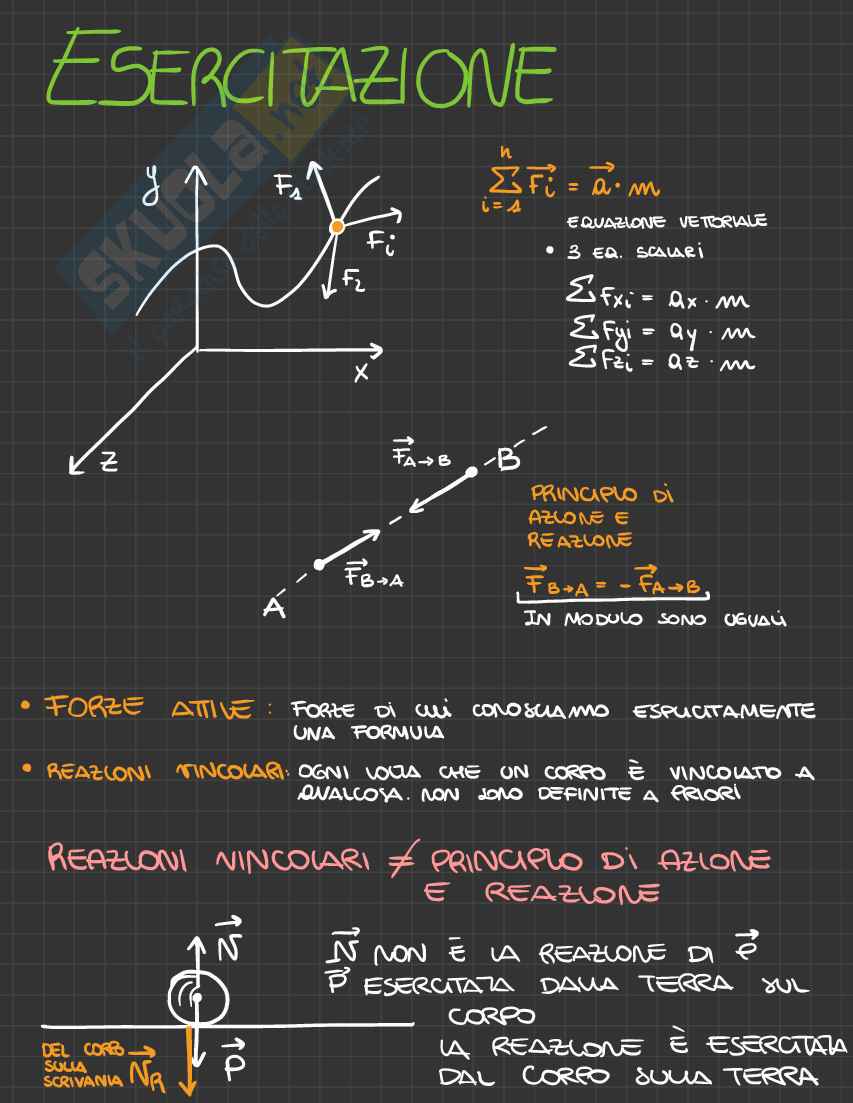 ESERCITAZIONE
SKUOLA.net
y
F₁
Fᵢ
F₂
x
z
n
∑ F⃗ᵢ = a⃗ · m
i=1
EQUAZIONE VETORIALE
• 3 EQ. SCALARI
∑ Fxᵢ = ax · m
∑ Fyᵢ = ay · m
∑ Fzᵢ = az · m
F⃗ A→B
B
F⃗ B→A
A
PRINCIPIO DI
AZIONE E
REAZIONE
F⃗ B→A = - F⃗ A→B
IN MODULO SONO UGUALI
• FORZE ATTIVE: FORZE DI CUI CONOSCIAMO ESPLICITAMENTE
UNA FORMULA
• REAZIONI VINCOLARI: OGNI VOLTA CHE UN CORPO È VINCOLATO A
QUALCOSA. NON SONO DEFINITE A PRIORI
REAZIONI VINCOLARI ≠ PRINCIPIO DI AZIONE
E REAZIONE
N⃗
P⃗
DEL CORPO
SULLA
SCRIVANIA N⃗R
N⃗ NON È LA REAZIONE DI P⃗
P⃗ ESERCITATA DALLA TERRA SUL
CORPO
LA REAZIONE È ESERCITATA
DAL CORPO SULLA TERRA